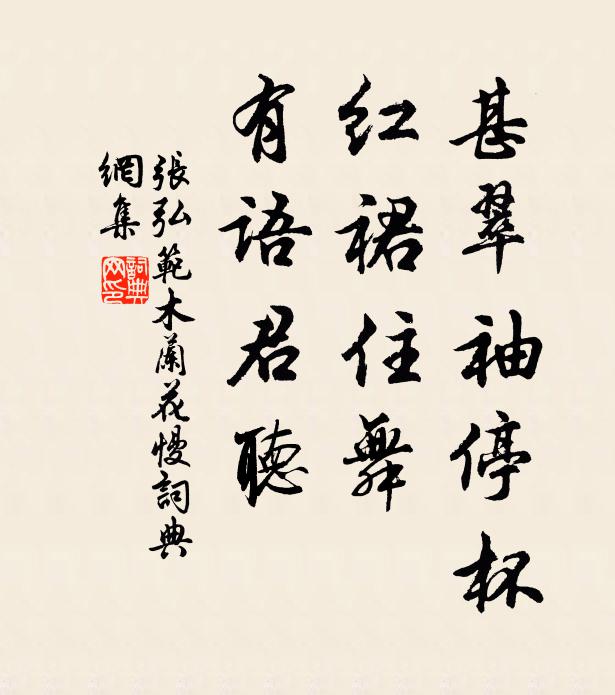 甚翠袖停杯
紅裙住舞
有語君聽
張弘範木蘭花慢詞典
網集
詞典網印